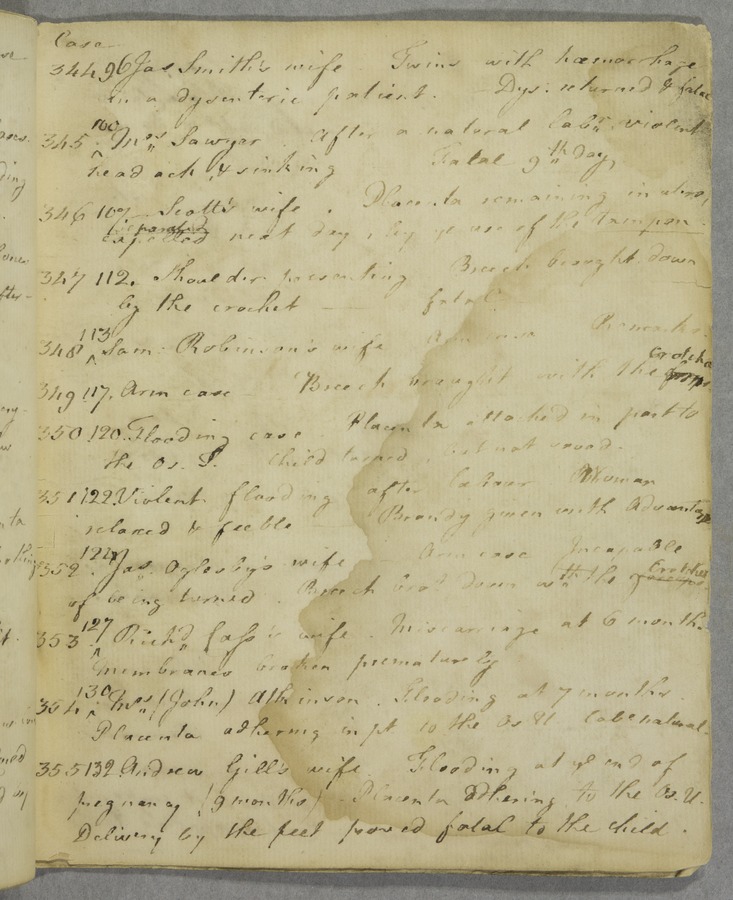 Case
344 96 Jas Smith's wife Twins with hæmorrhage
in a dysenteric patient. Dys: returned & fatal
345 100 Mrs Sawyer. After a natural labr violent
head ach & sinking Fatal 9th day,
346 109 Scott's wife. Placenta remaining in utero,
expelled next day by ye use of the Tampon.
347 112. Shoulder presenting Breech brought down
by the crochet — fatal
348 113 Sam: Robinson's wife Arm case Remarks.
349 117. Arm case — Breech brought with the crotchet
350 120. Flooding case. Placenta attached in part to
the Os. U. Child turned, not saved.
351 122 Violent flooding after labour Woman
relaxed & feeble — Brandy given with Advantage
352 124 Jas. Oglesby's wife — Arm case Incapable
of being turned. Breech brot down wth the Crotchet forceps
353 127 Richd Cass's wife. Miscarriage at 6 months
Membranes broken prematurely
354 130 Mrs (John) Atkinson. Flooding at 7 months.
Placenta adhering in pt to the Os U Labr natural.
355 132 Andrew Gill's wife Flooding at ye end of
pregnancy (9 months) — Placenta adhering to the Os. U.
Delivery by the feet proved fatal to the child.